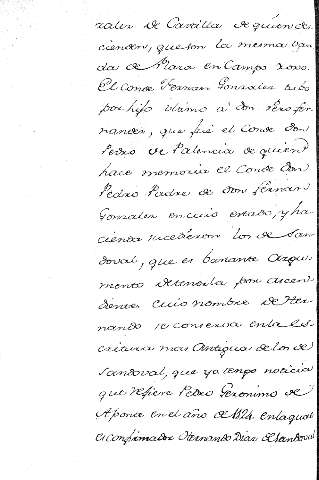 zalez de Castilla de quien de
cienden, que son la misma van
da de Plata en Campo roxo.
El Conde Fernan Gonzalez tubo
por hijo ultimo á don Pero fer
nandez, que fué el Conde don
Pedro de Palencia de quien
hace memoria el Conde don
Pedro Padre de don fernan
Gonzalez en cuio estado, y ha
cienda sucedieron los de San
doval, que es bastante Argu
mento detenerla por ascen
diente cuio nombre de Her
nando se conserva en la Es
critura mas Antigua de los de
Sandoval, que ya tengo noticia
que refiere Pedro Geronimo de
Aponte en el año de 1124 en la qual
es confirmador Hernando Diaz de Sandoval